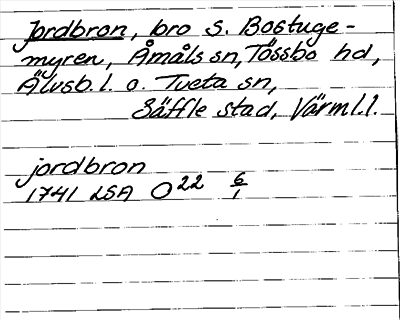 Jordbron, bro S. Bostuge-
myren, Åmåls sn, Tössbo hd,
Älvsb. l. o. Tveta sn,
Säffle stad, Värml. l.
jordbron
1741 LSA O 22 6/1